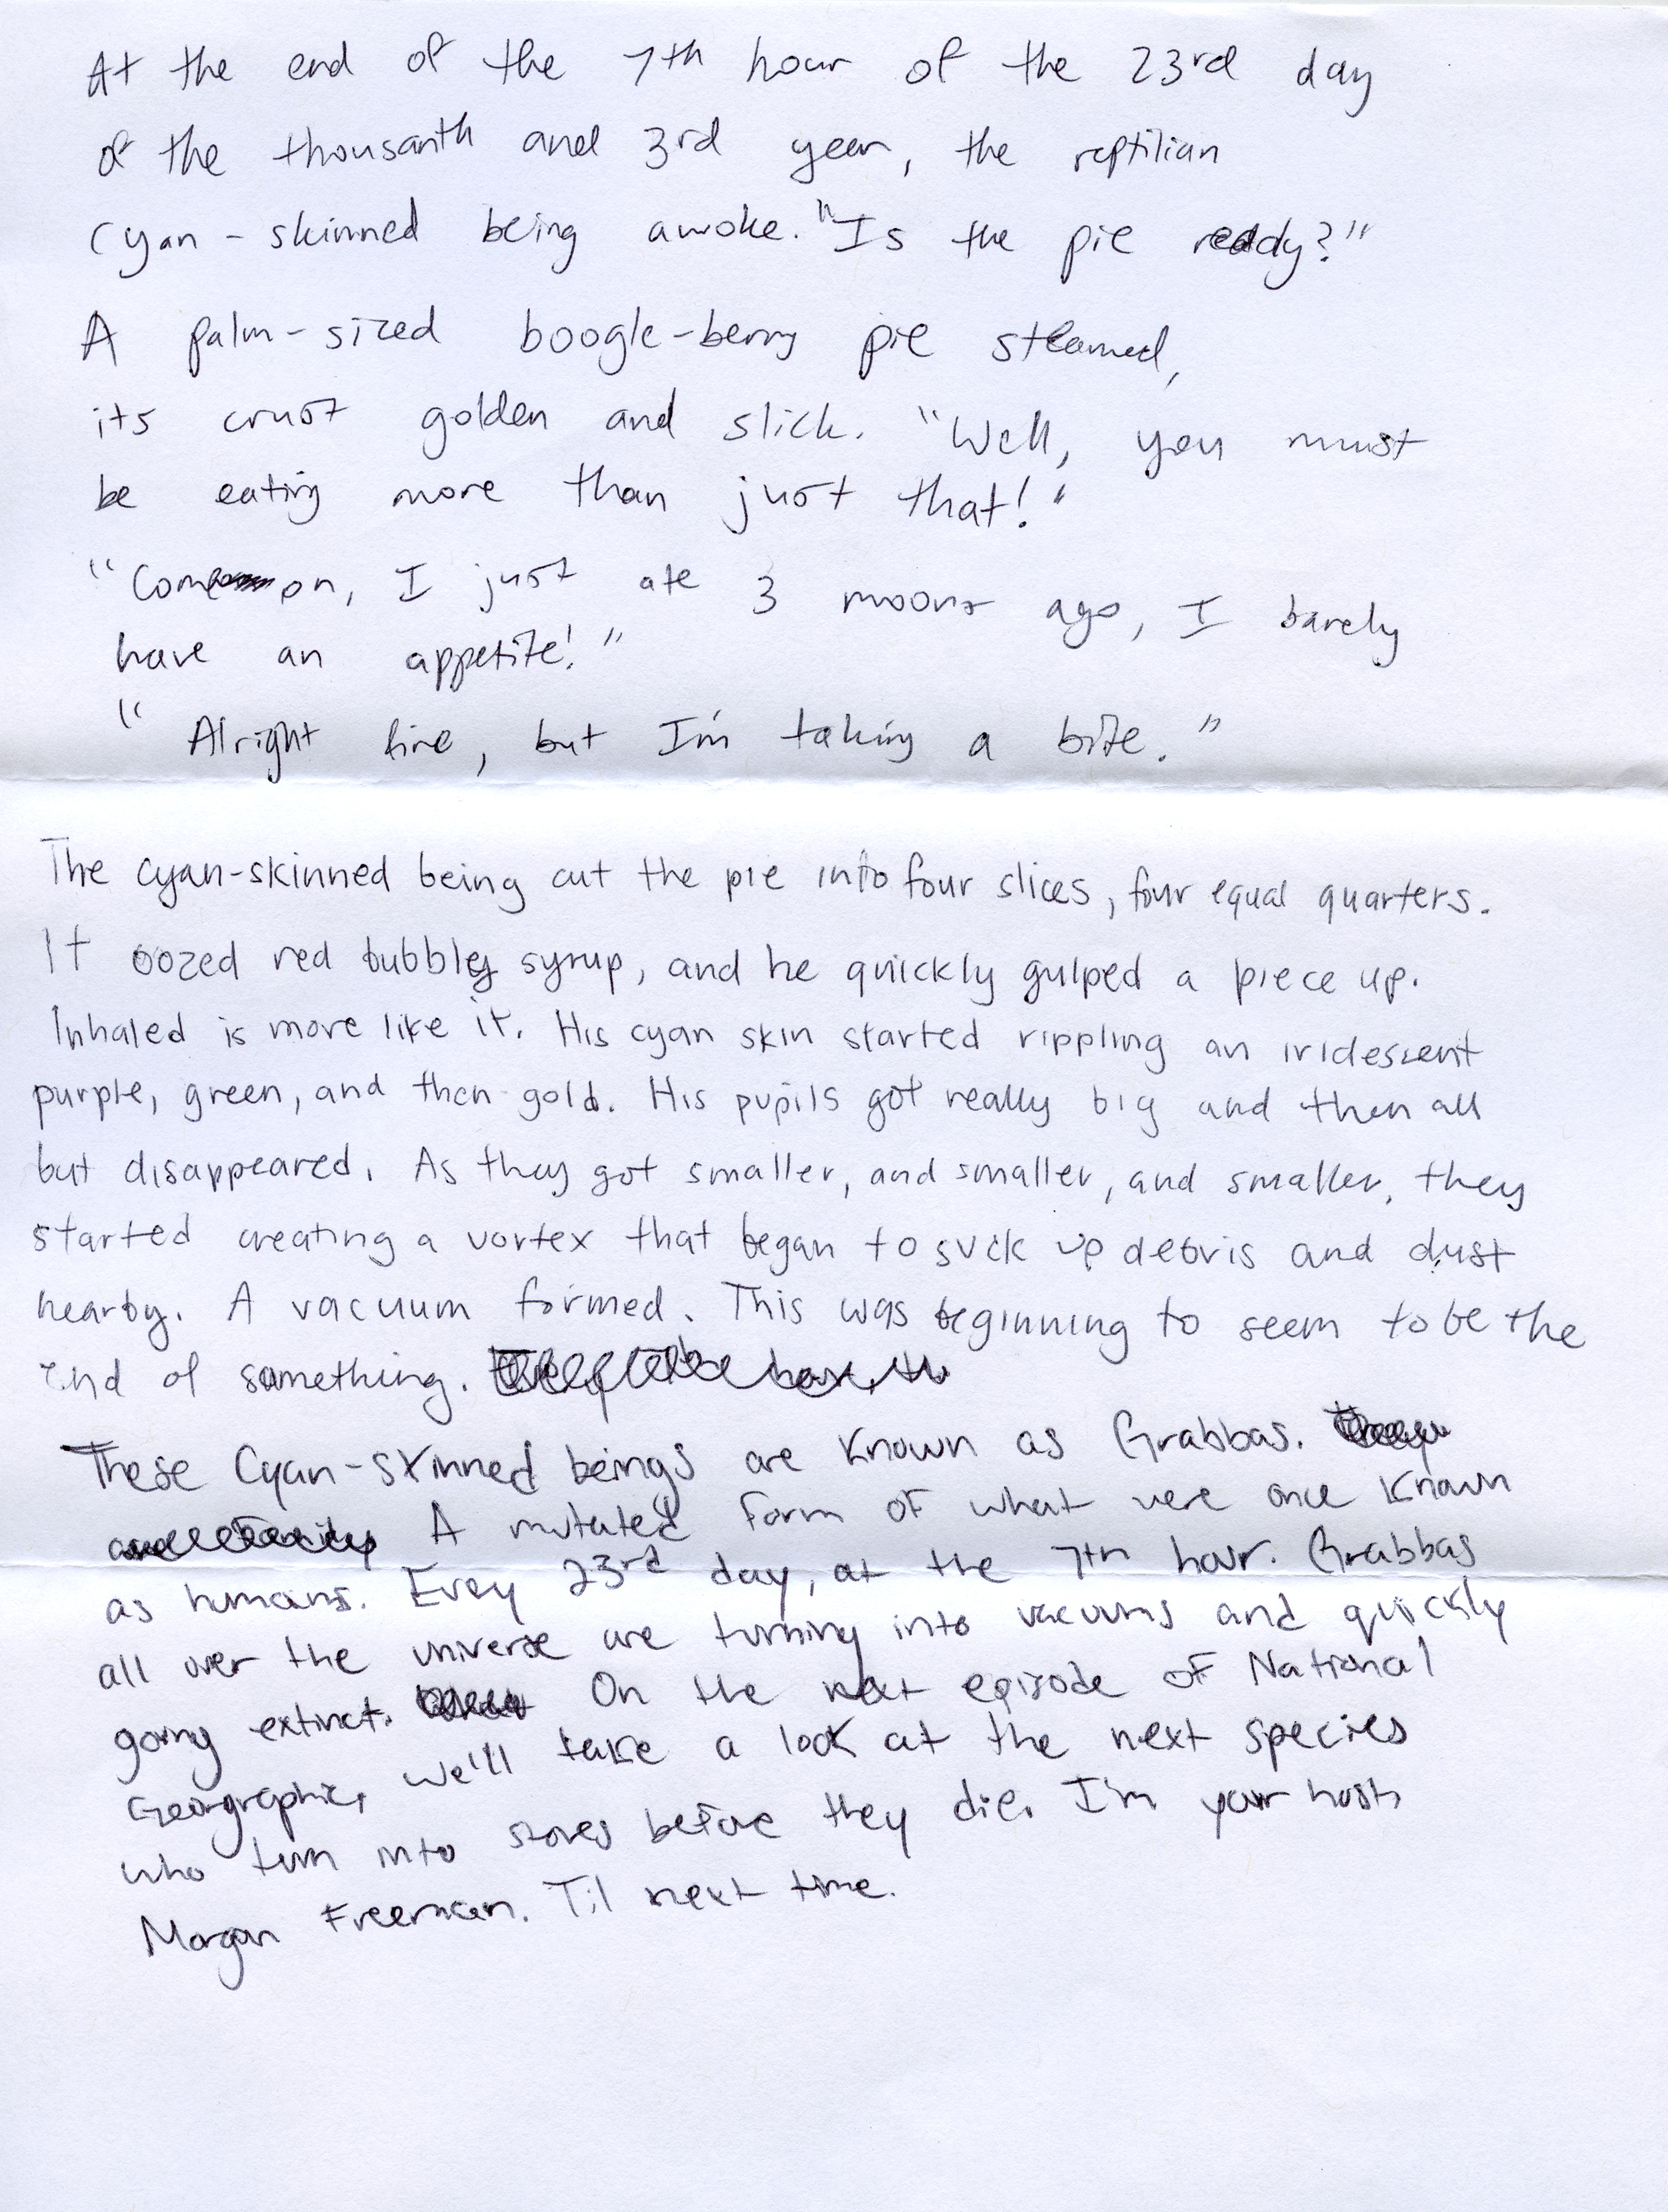 At the end of the 7th hour of the 23rd day
of the thousanth and 3rd year, the reptilian
cyan-skinned being awoke. "Is the pie ready?"
A palm-sized boogle-berry pie steamed,
its crust golden and slick. "Well, you must
be eating more than just that!"
"Come on, I just ate 3 moons ago, I barely
have an appetite!"
"Alright fine, but I'm taking a bite."
The cyan-skinned being cut the pie into four slices, four equal quarters.
It oozed red bubbly syrup, and he quickly gulped a piece up.
Inhaled is more like it. His cyan skin started rippling an iridescent
purple, green, and then gold. His pupils got really big and then all
but disappeared. As they got smaller, and smaller, and smaller, they
started creating a vortex that began to suck up debris and dust
nearby. A vacuum formed. This was beginning to seem to be the
end of something.
These Cyan-skinned beings are known as Grabbas.
A mutated form of what were once known
as humans. Every 23rd day, at the 7th hour. Grabbas
all over the universe are turning into vacuums and quickly
going extinct. On the next episode of National
Georgraphic, we'll take a look at the next species
who turn into stoves before they die. I'm your host,
Morgan Freeman. Til next time.